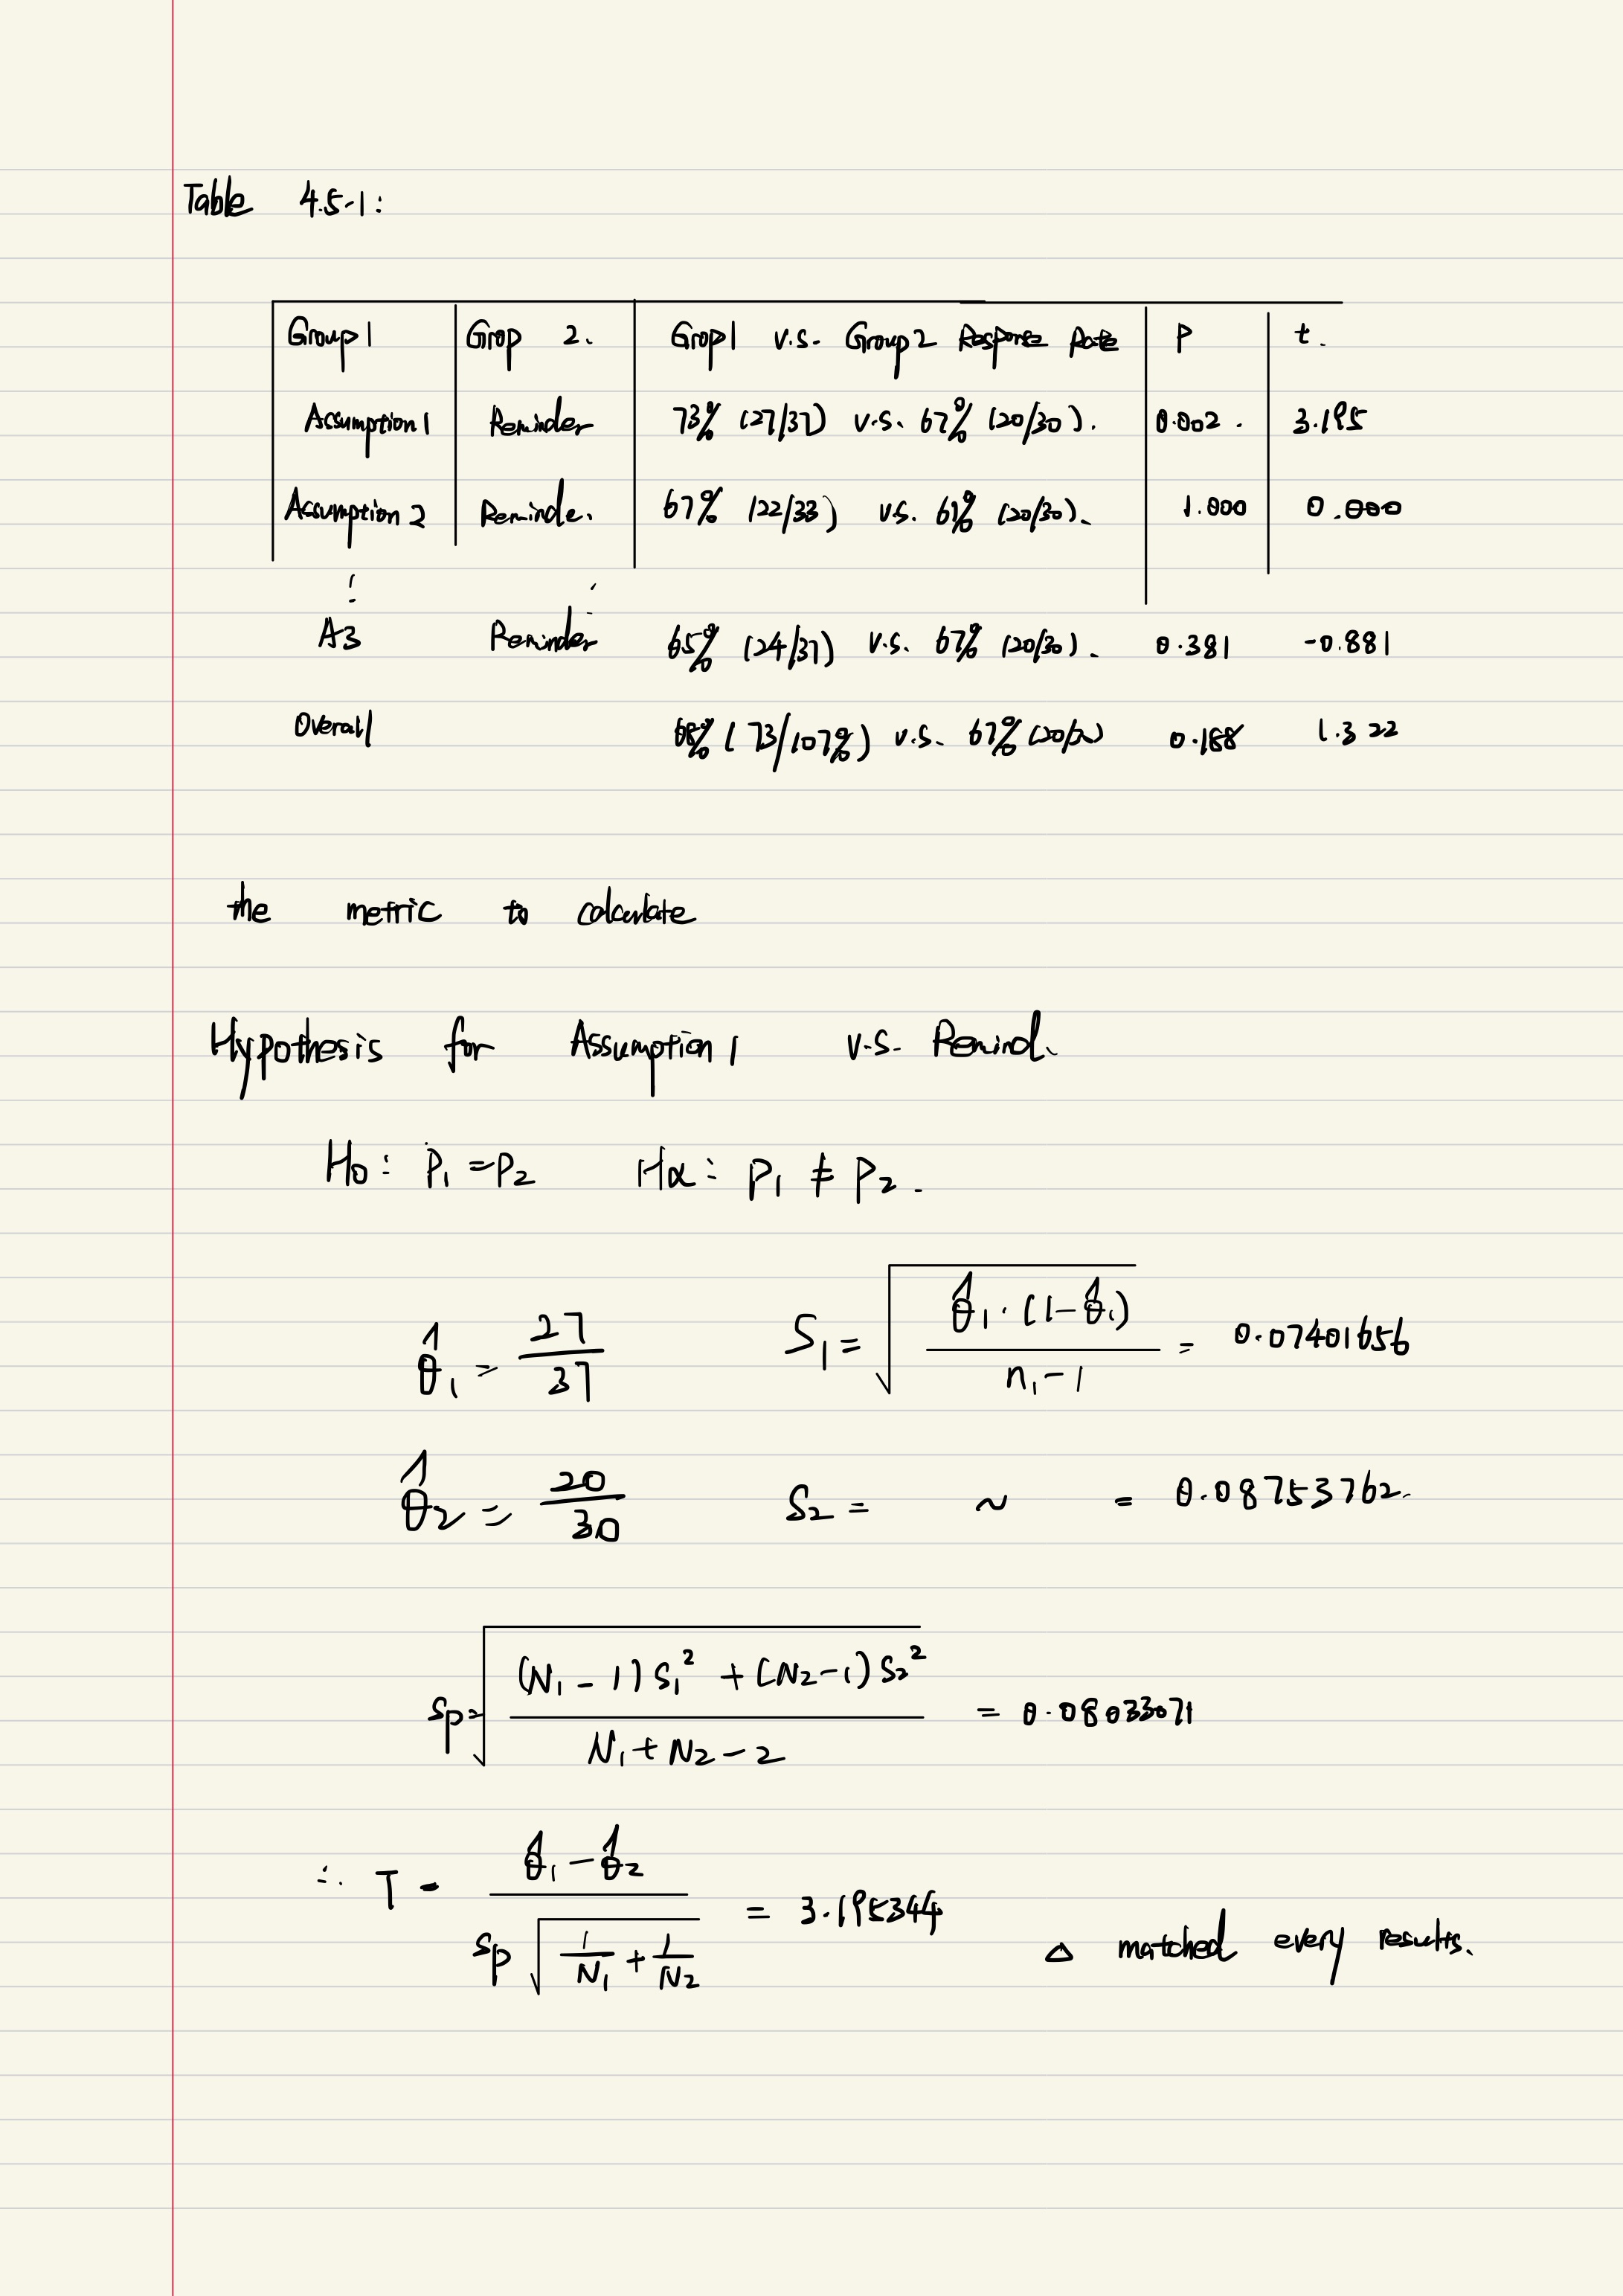 Table 4.5-1:
Group1 Grop 2. Grop1 v.s. Group2 Response Rate P t.
Assumption1 Reminder 73% (27/37) v.s. 67% (20/30). 0.002. 3.195
Assumption2 Reminde. 67% (22/33) v.s. 67% (20/30). 1.000 0.000
A3 Reminder 65% (24/37) v.s. 67% (20/30). 0.381 -0.881
Overall 68% (73/107%) v.s. 67% (20/30) 0.188 1.322
the metric to calculate
Hypothesis for Assumption1 v.s. Remind.
H₀: P₁ = P₂ Hα: P₁ ≠ P₂.
θ̂₁ = 27/37 S₁ = √(θ̂₁·(1-θ̂₁)/(n₁-1)) = 0.07401656
θ̂₂ = 20/30 S₂ = ~ = 0.08753762.
Sp = √(((N₁-1)S₁² + (N₂-1)S₂²)/(N₁+N₂-2)) = 0.08033071
∴ T = (θ̂₁-θ̂₂)/(Sp√(1/N₁+1/N₂)) = 3.195344 △ matched every results.